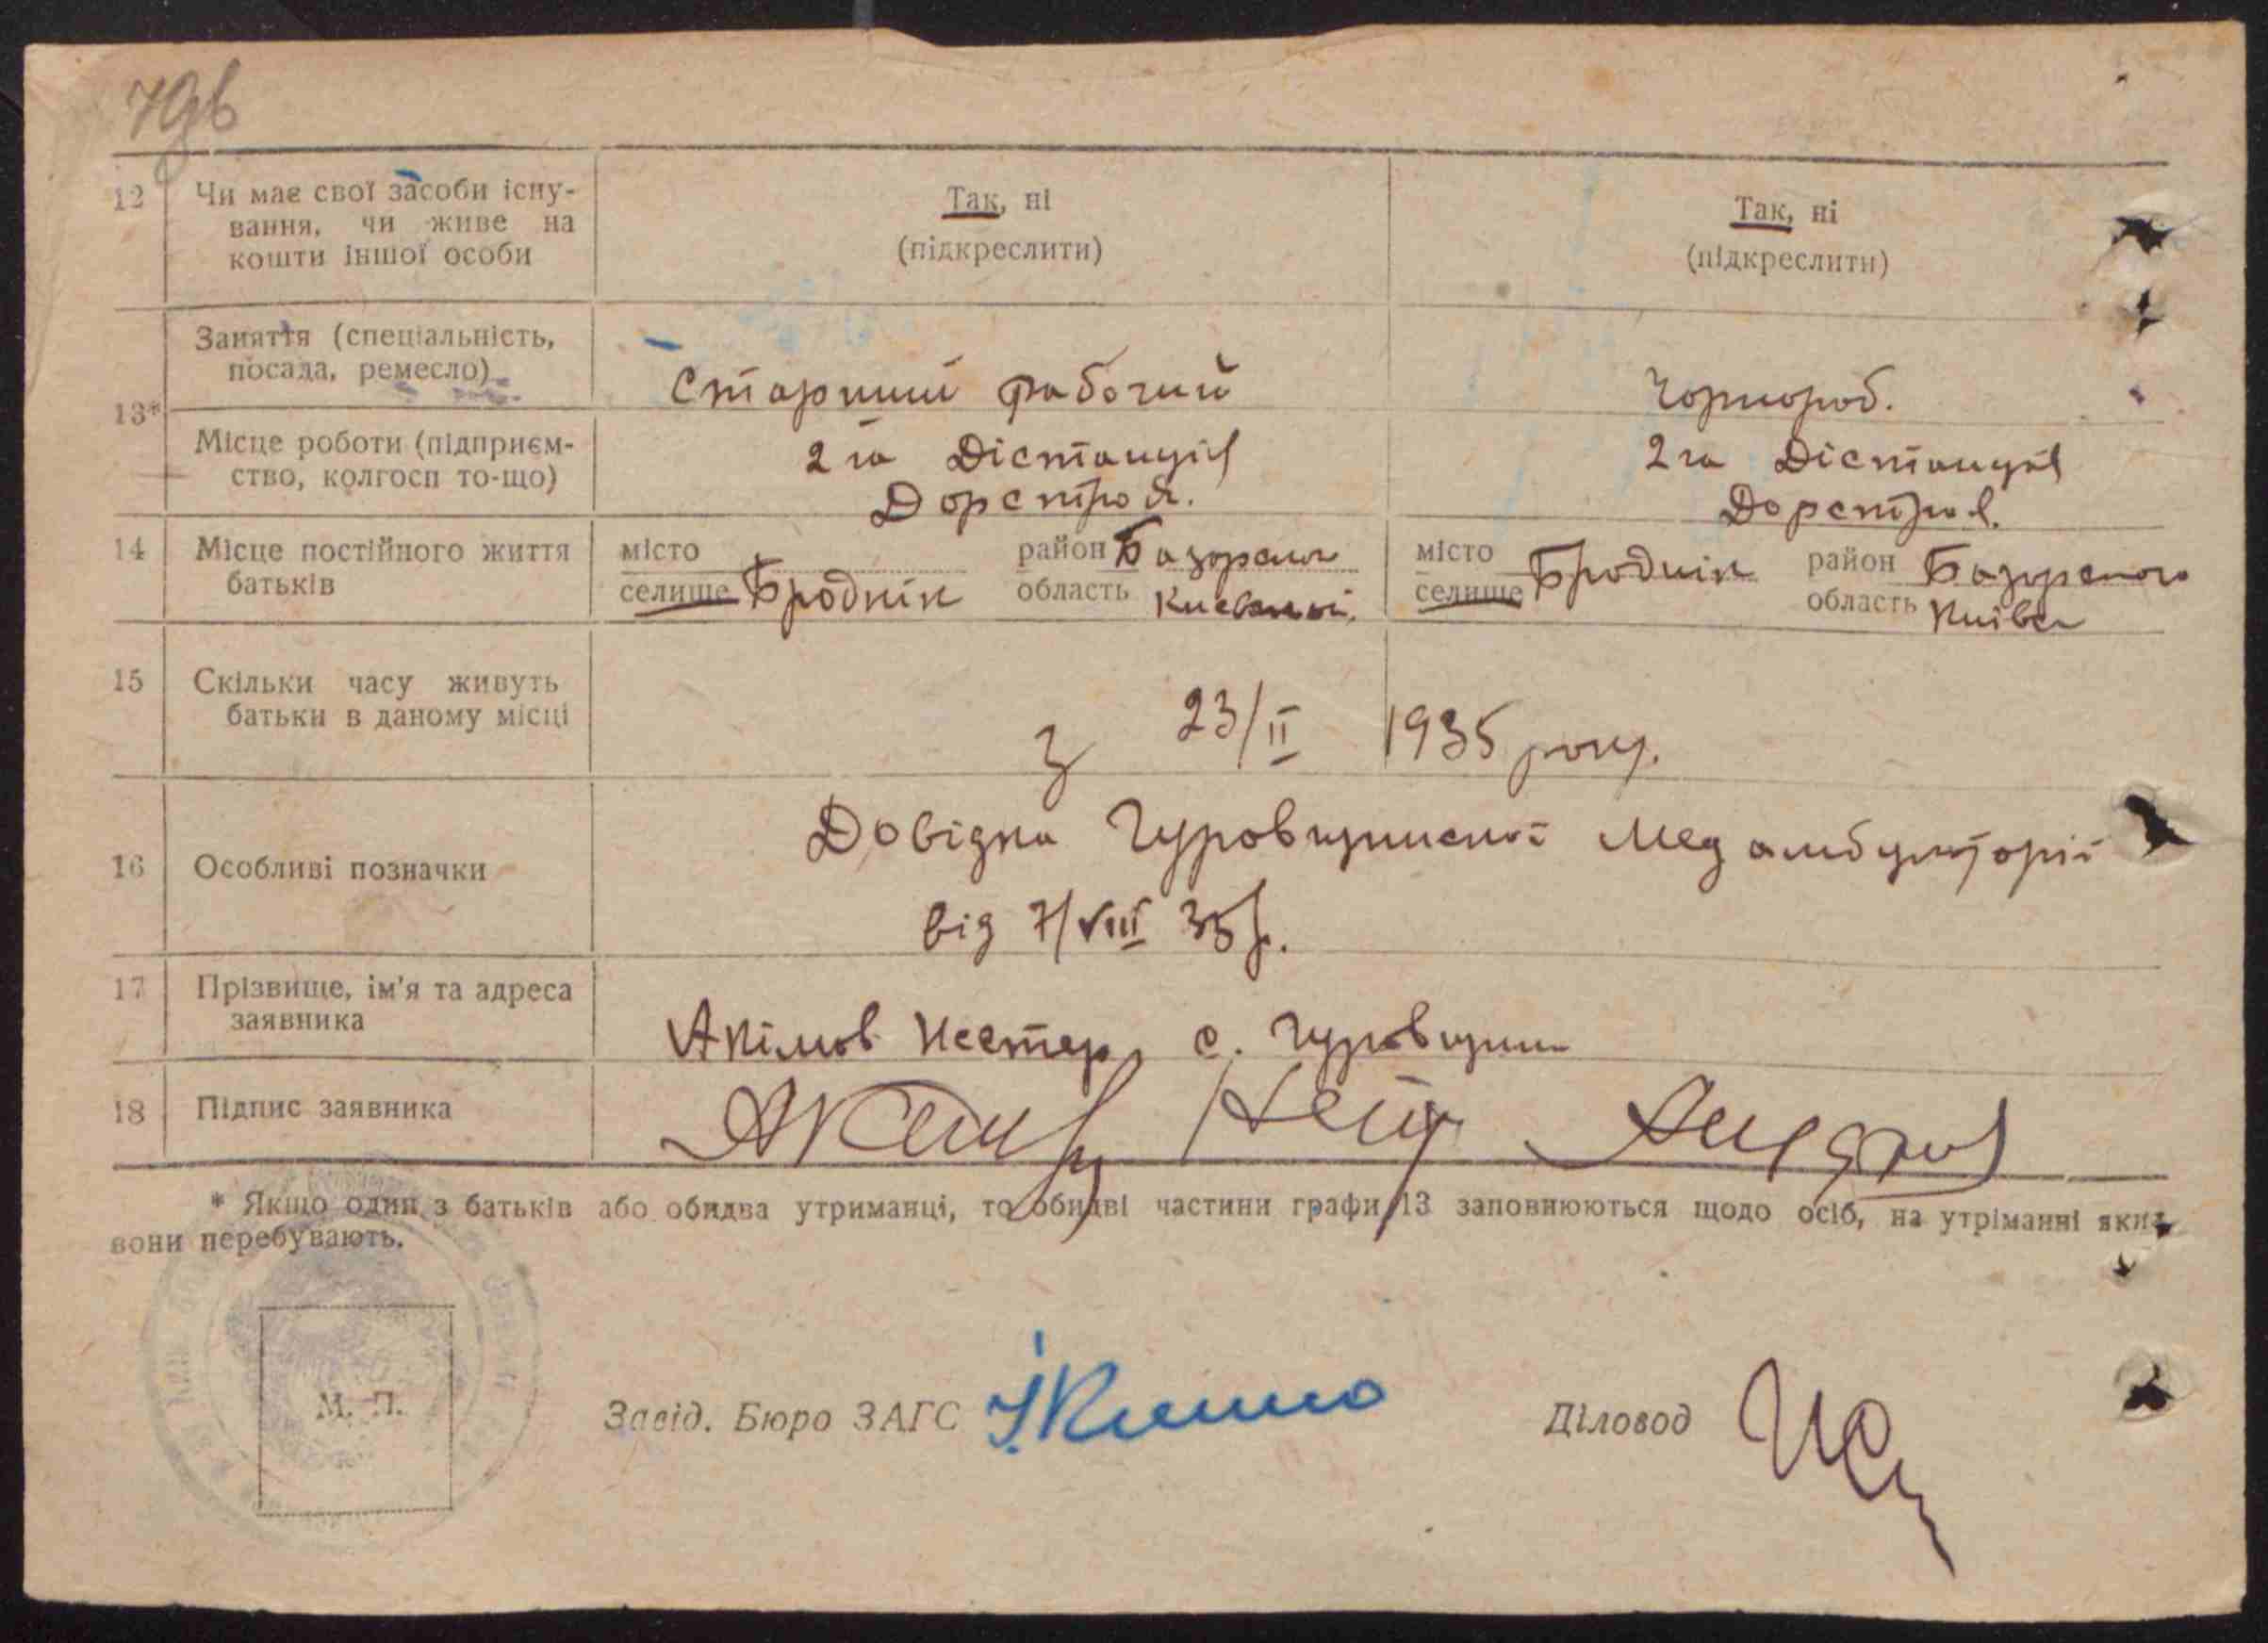 79в
12 Чи має свої засоби існу-
вання, чи живе на
кошти іншої особи
Так, ні
(підкреслити)
Так, ні
(підкреслити)
13*
Заняття (спеціальність,
посада, ремесло)
Старший рабочий
Чорнороб.
Місце роботи (підприєм-
ство, колгосп то-що)
2га Дістанція
Дорстроя.
2га Дістанція
Дорстроя.
14 Місце постійного життя
батьків
місто
селище Бродник
район Базарськ
область Киевской
місто
селище Бродник
район Базарського
область Київс
15 Скільки часу живуть
батьки в даному місці
З 23/II 1935 року.
16 Особливі позначки
Довідка Гуровщинської Мед амбулаторії
від 7/VIII 35 р.
17 Прізвище, ім'я та адреса
заявника
Акімов Нестер, с. Гуровщини
18 Підпис заявника
* Якщо один з батьків або обидва утриманці, то обидві частини графи 13 заповнюються щодо осіб, на утріманні яких
вони перебувають.
М. П.
Завід. Бюро ЗАГС
Діловод